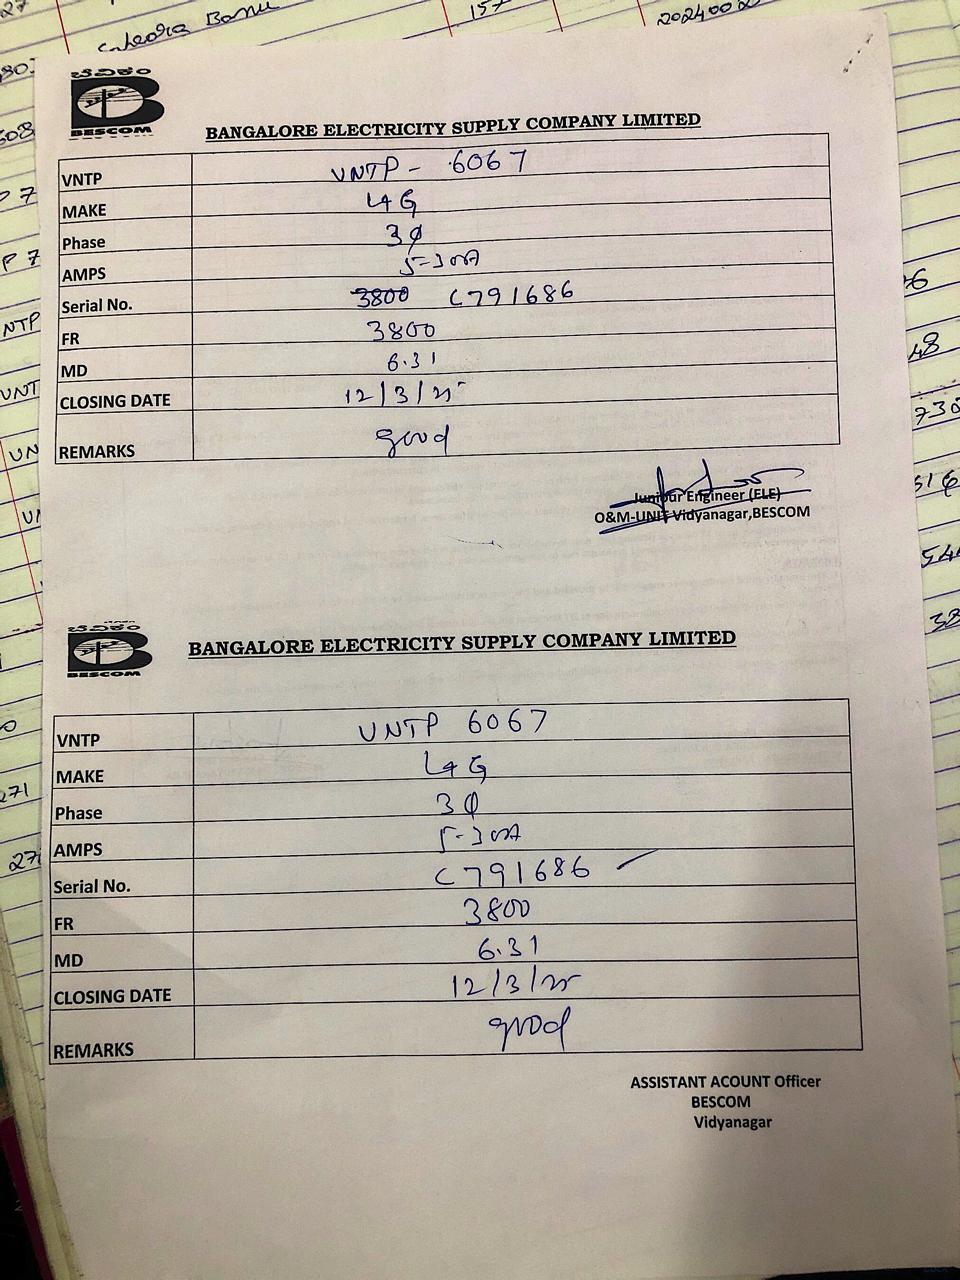 27
Banu
157
ಬೆವಿಕಂ
BESCOM
BANGALORE ELECTRICITY SUPPLY COMPANY LIMITED
VNTP VNTP - 6067
MAKE L+G
Phase 3φ
AMPS 5-30A
Serial No. 3800 C791686
FR 3800
MD 6.31
CLOSING DATE 12/3/25
REMARKS good
Juniour Engineer (ELE)
O&M-UNIT Vidyanagar,BESCOM
ಬೆವಿಕಂ
BESCOM
BANGALORE ELECTRICITY SUPPLY COMPANY LIMITED
VNTP VNTP 6067
MAKE L+G
Phase 3φ
AMPS 5-30A
Serial No. C791686
FR 3800
MD 6.31
CLOSING DATE 12/3/25
REMARKS good
ASSISTANT ACOUNT Officer
BESCOM
Vidyanagar